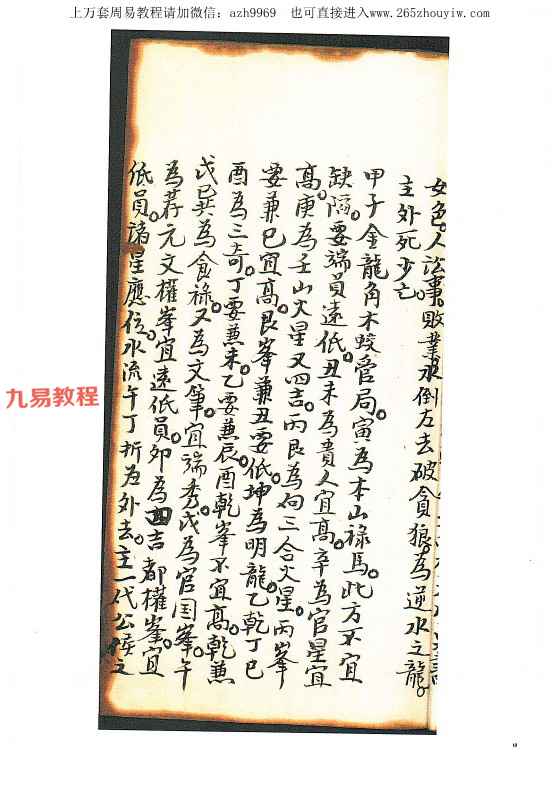 上万套周易教程请加微信：azh9969 也可直接进入www.265zhouyiw.com
女色。人讼事敗業水倒左去破貪狼。為逆水之龍。
主外死少亡
甲子金龍角木蛟管局。寅為本山祿馬。此方不宜
缺陷。要端員遠低。丑未為貴人宜高。辛為官星宜
高。庚為壬山火星又四吉。丙艮為向三合火星。丙峯
要兼巳宜高。艮峯兼丑要低。坤為明龍。乙乾丁巳
酉為三奇。丁要兼未。乙要兼辰。酉乾峯不宜高。乾兼
戌巽為食祿。又為文筆宜端秀。戌為官国峯。午
為荐元文權峯宜遠低員。卯為四吉都權峯。宜
低員。諸星應位。水流午丁折為外去。主一代公矦之
九易教程